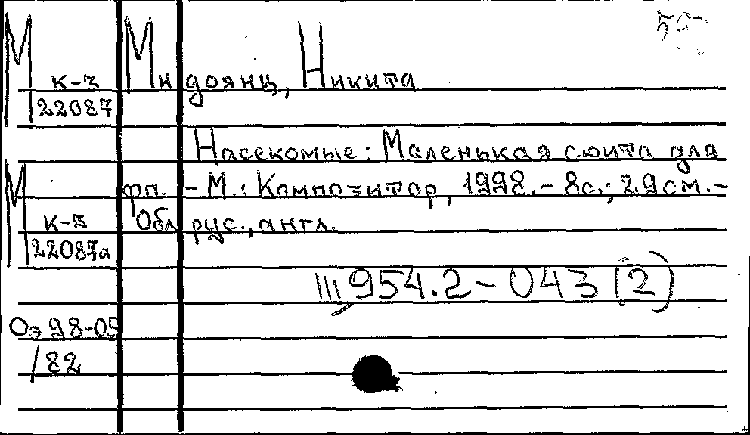 М Мндоянц, Никита
к-з
22087
Насекомые: Маленькая сюита для
фп. - М.: Композитор, 1998. - 8с.; 29см. -
М Обл. рус., англ.
к-з
22087а
954.2-043(2)
Оэ98-05
/82